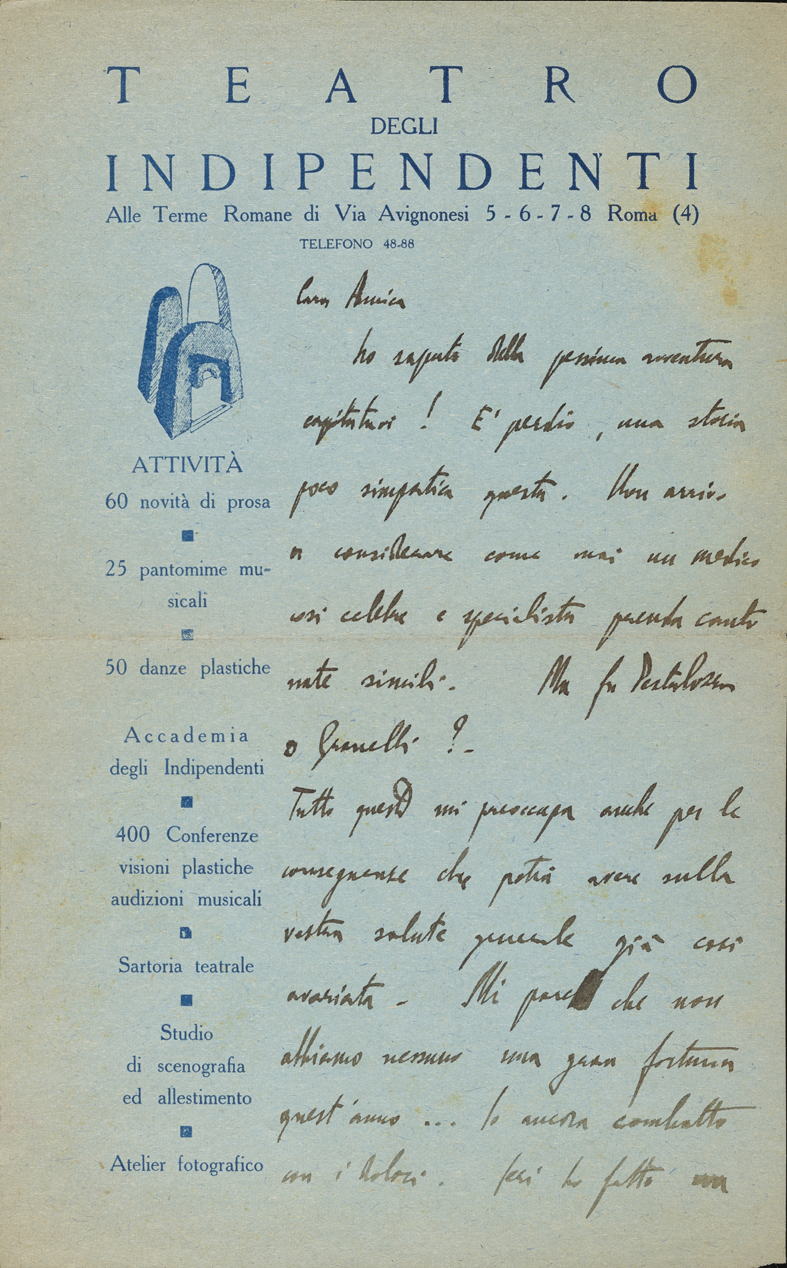 TEATRO
DEGLI
INDIPENDENTI
Alle Terme Romane di Via Avignonesi 5 - 6 - 7 - 8 Roma (4)
TELEFONO 48-88
ATTIVITÀ
60 novità di prosa
25 pantomime mu-
sicali
50 danze plastiche
Accademia
degli Indipendenti
400 Conferenze
visioni plastiche
audizioni musicali
Sartoria teatrale
Studio
di scenografia
ed allestimento
Atelier fotografico
Cara Amica
ho saputo della pessima avventura
capitatavi ! E' perdio, una storia
poco simpatica questa. Non arrivo
a considerare come mai un medico
così celebre e specialista prenda canto
nate simili. Ma fu Pestalozza
o Granelli ? -
Tutto questo mi preoccupa anche per le
conseguenze che potrà avere sulla
vostra salute generale già così
avariata - Mi pare che non
abbiamo nessuno una gran fortuna
quest'anno ... Io ancora combatto
con i dolori. Ieri ho fatto un